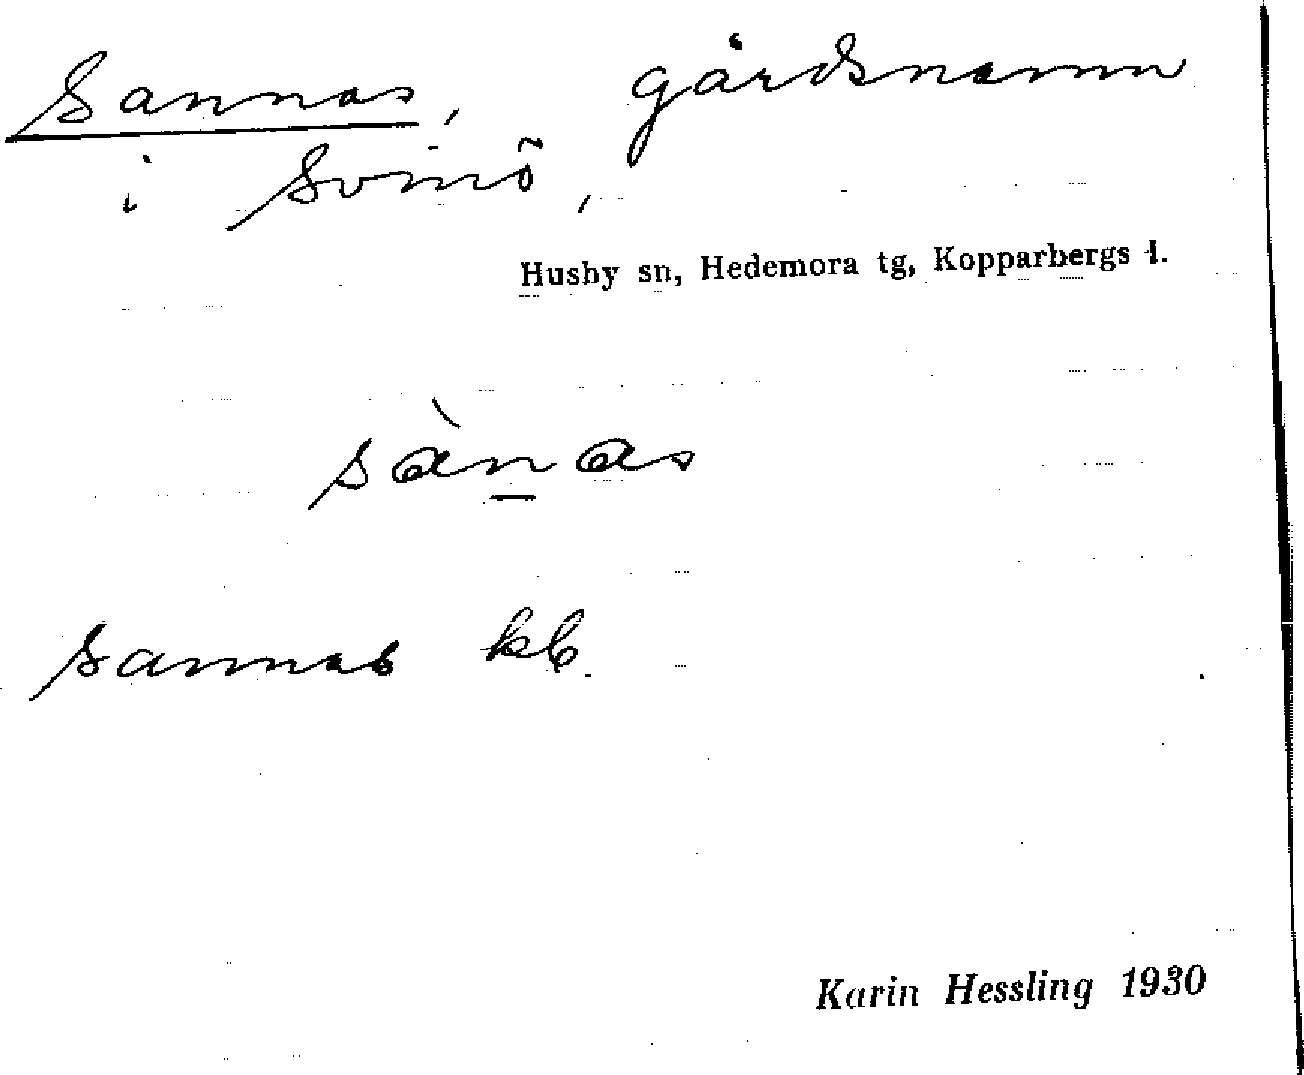 Sannas, gårdsnamn
i Svinö,
Husby sn, Hedemora tg, Kopparbergs l.
sànas
Sannas kb.
Karin Hessling 1930